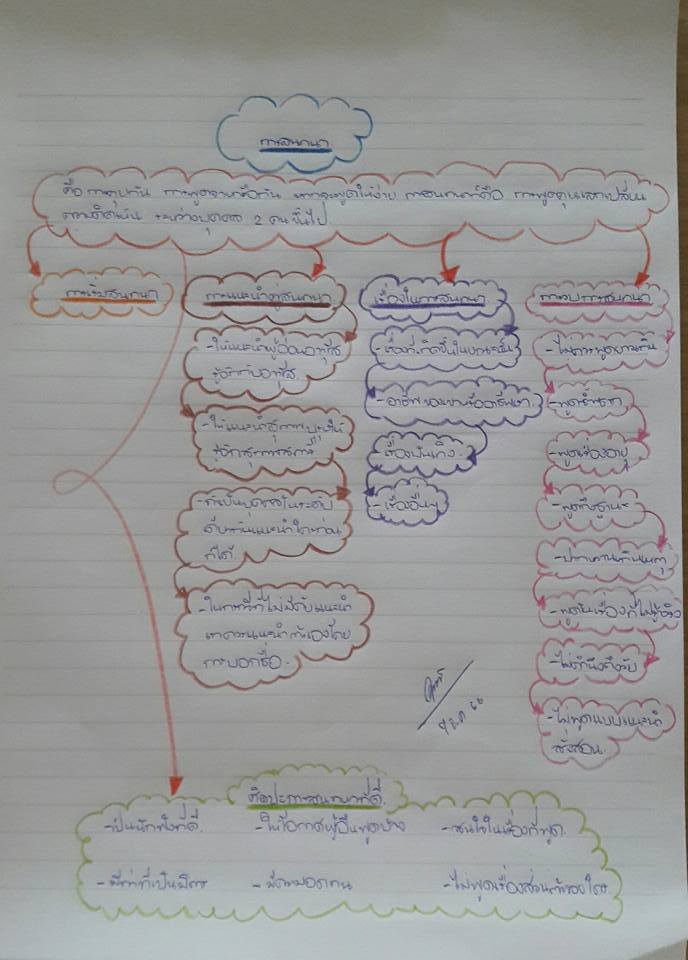 การสนทนา
คือ การคุยกัน การพูดจาหารือกัน เราจะพูดให้ง่าย การสนทนาคือ การพูดคุยแลกเปลี่ยน
ความคิดเห็น ระหว่างบุคคล 2 คนขึ้นไป
การเริ่มสนทนา
การแนะนำคู่สนทนา
- ให้แนะนำผู้อ่อนอาวุโส
รู้จักกับอาวุโส
- ให้แนะนำสุภาพบุรุษให้
รู้จักสุภาพสตรี
- ถ้าเป็นบุคคลในระดับ
เดียวกันแนะนำใครก่อน
ก็ได้
- ในกรณีที่ไม่มีใครแนะนำ
เราควรแนะนำตัวเองโดย
การบอกชื่อ
เรื่องในการสนทนา
- เรื่องที่เกิดขึ้นในขณะนั้น
- อาชีพของเขาหรือของเรา
เรื่องบันเทิง
- เรื่องอื่นๆ
การสนทนา
- ไม่ควรพูด
- พูด
- พูดเรื่องอายุ
- พูดถึงฐานะ
- เกินเหตุ
- พูดในเรื่องที่ไม่รู้จริง
- ไม่คำนึงถึงวัย
- ไม่พูดแบบแนะนำ
สั่งสอน
ศิลปะการสนทนาที่ดี
- เป็นนักฟังที่ดี
- ให้โอกาสผู้อื่นพูดบ้าง
- สนใจในเรื่องที่พูด
- มีท่าทีเป็นมิตร
- มีความอดทน
- ไม่พูดเรื่องส่วนตัวของใคร